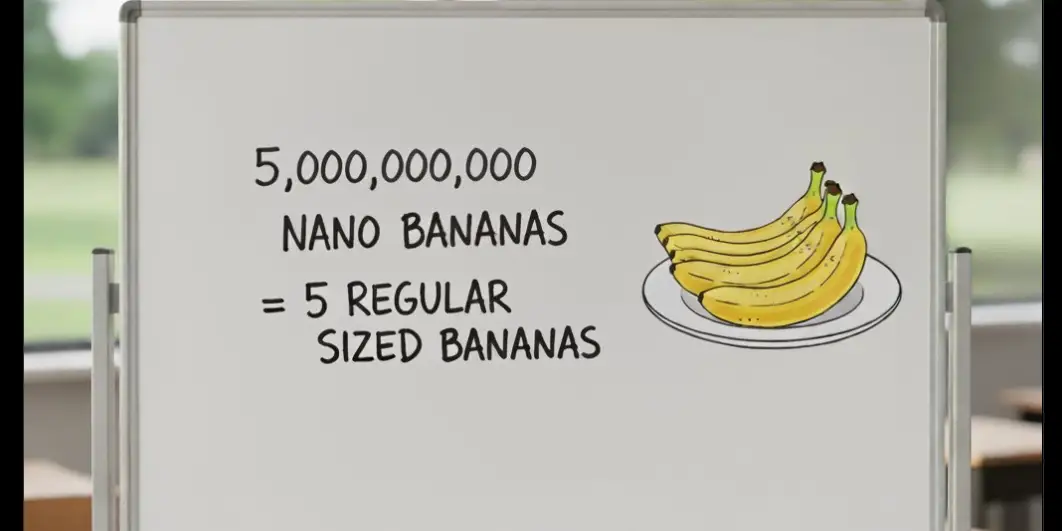 5,000,000,000
NANO BANANAS
= 5 REGULAR
SIZED BANANAS